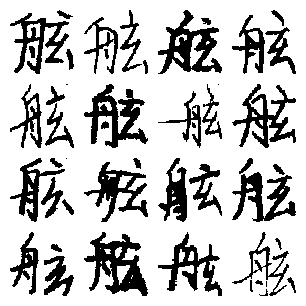 舷舷舷舷
舷舷舷舷
舷舷舷舷
舷舷舷舷